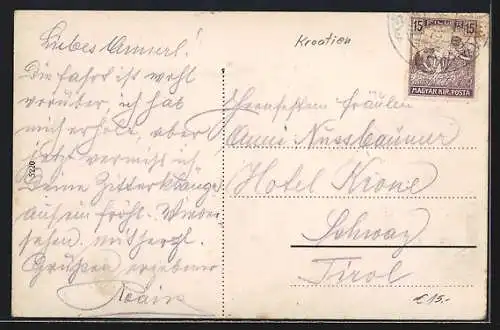 Liebes Annerl!
Die Fahrt ist wohl
vorüber, ich hab
mich erholt, aber
jetzt vermiss ich
Deine Zitterklänge
auf ein fröhl. Wieder
sehen. mit herzl.
Grüßen ergebener
5220
Kroatien
15 FILLER 15
MAGYAR KIR. POSTA
Fräulein
Anni Nussbaumer
Hotel Krone
Schwaz
Tirol
€ 15.-